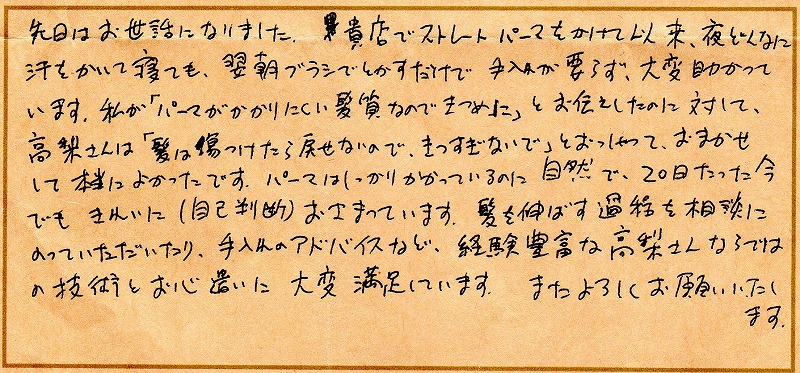 先日はお世話になりました. 貴店でストレートパーマをかけて以来、夜どんなに
汗をかいて寝ても、翌朝ブラシでとかすだけで 手入れが要らず、大変助かって
います. 私が「パーマがかかりにくい髪質なのできつめに」とお伝えしたのに対して、
高梨さんは「髪は傷つけたら戻せないので、きつすぎないで」とおっしゃって、おまかせ
して本当によかったです. パーマはしっかりかかっているのに自然で、20日たった今
でも きれいに(自己判断)おさまっています. 髪を伸ばす過程を相談に
のっていただいたり、手入れのアドバイスなど、経験豊富な高梨さんならでは
の技術とお心遣いに 大変 満足しています. またよろしくお願いいたし
ます.